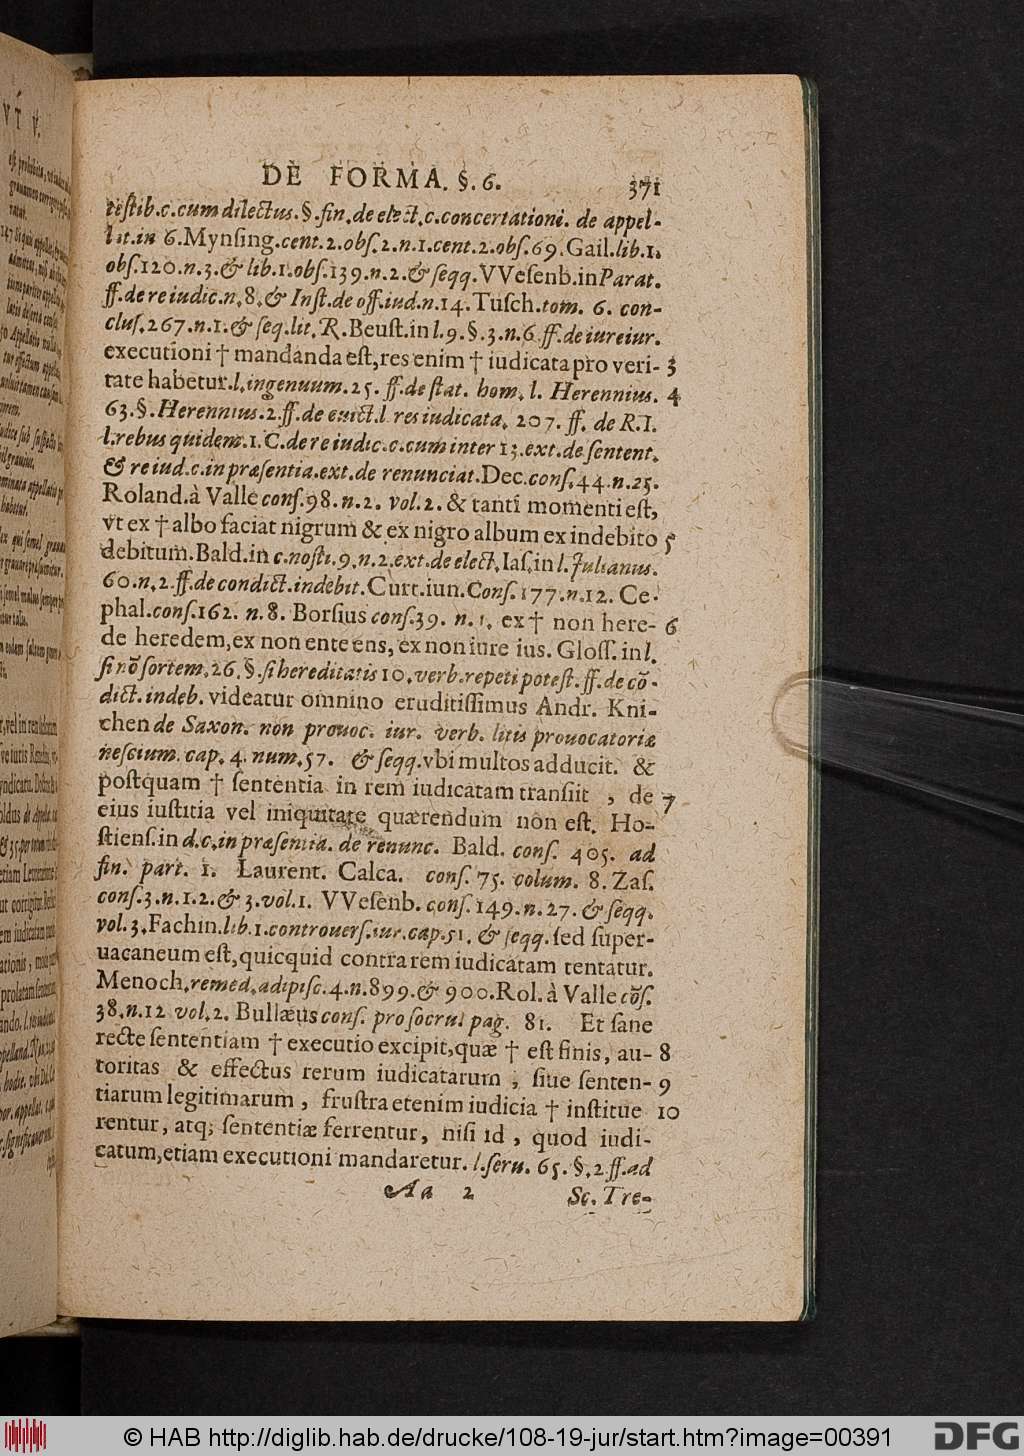 DE FORMA. §. 6. 371
testib. c. cum dilectus. §. fin. de elect. c. concertationi. de appel-
lit. in 6. Mynsing. cent. 2. obs. 2. n. 1. cent. 2. obs. 69. Gail. lib. 1.
obs. 120. n. 3. & lib. 1. obs. 139. n. 2. & seqq. VVesenb. in Parat.
ff. de re iudic. n. 8. & Inst. de off. iud. n. 14. Tusch. tom. 6. con-
clus. 267. n. 1. & seq. lit. R. Beust. in l. 9. §. 3. n. 6 ff. de iureiur.
executioni † mandanda est, res enim † iudicata pro veri- 3
tate habetur. l. ingenuum. 25. ff. de stat. hom. l. Herennius. 4
63. §. Herennius. 2. ff. de euict. l. res iudicata. 207. ff. de R. I.
l. rebus quidem. 1. C. de re iudic. c. cum inter 13. ext. de sentent.
& re iud. c. in præsentia. ext. de renunciat. Dec. cons. 44. n. 25.
Roland. à Valle cons. 98. n. 2. vol. 2. & tanti momenti est,
vt ex † albo faciat nigrum & ex nigro album ex indebito 5
debitum. Bald. in c. nosti. 9. n. 2. ext. de elect. Ias. in l. Julianus.
60. n. 2. ff. de condict. indebit. Curt. iun. Cons. 177. n. 12. Ce-
phal. cons. 162. n. 8. Borsius cons. 39. n. 1. ex † non here- 6
de heredem, ex non ente ens, ex non iure ius. Gloss. in l.
si nō sortem. 26. §. si hereditatis 10. verb. repeti potest. ff. de cō-
dict. indeb. videatur omnino eruditissimus Andr. Kni-
chen de Saxon. non prouoc. iur. verb. litis prouocatoriæ
nescium. cap. 4. num. 57. & seqq. vbi multos adducit. &
postquam † sententia in rem iudicatam transiit , de 7
eius iustitia vel iniquitate quærendum non est. Ho-
stiens. in d. c. in præsentia. de renunc. Bald. cons. 405. ad
fin. part. 1. Laurent. Calca. cons. 75. colum. 8. Zas.
cons. 3. n. 1. 2. & 3. vol. 1. VVesenb. cons. 149. n. 27. & seqq.
vol. 3. Fachin. lib. 1. controuers. iur. cap. 51. & seqq. sed super-
uacaneum est, quicquid contra rem iudicatam tentatur.
Menoch. remed. adipisc. 4. n. 899. & 900. Rol. à Valle cōs.
38. n. 12 vol. 2. Bullæus cons. pro socrui pag. 81. Et sane
recte sententiam † executio excipit, quæ † est finis, au- 8
toritas & effectus rerum iudicatarum , siue senten- 9
tiarum legitimarum , frustra etenim iudicia † institue 10
rentur, atq; sententiæ ferrentur, nisi id , quod iudi-
catum, etiam executioni mandaretur. l. seru. 65. §. 2 ff. ad
Aa 2 Sc. Tre-
© HAB http://diglib.hab.de/drucke/108-19-jur/start.htm?image=00391
DFG